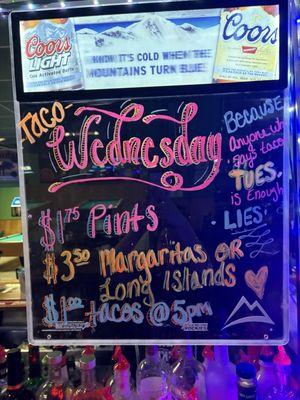 Coors LIGHT
KNOW IT'S COLD WHEN THE
MOUNTAINS TURN BLUE
Coors
BANQUET
Taco
Wednesday
BECAUSE
Anyone who
says taco
TUES.
is Enough
LIES
$1.75 Pints
$3.50 Margaritas OR
Long Islands
$1.00 tacos @ 5pm